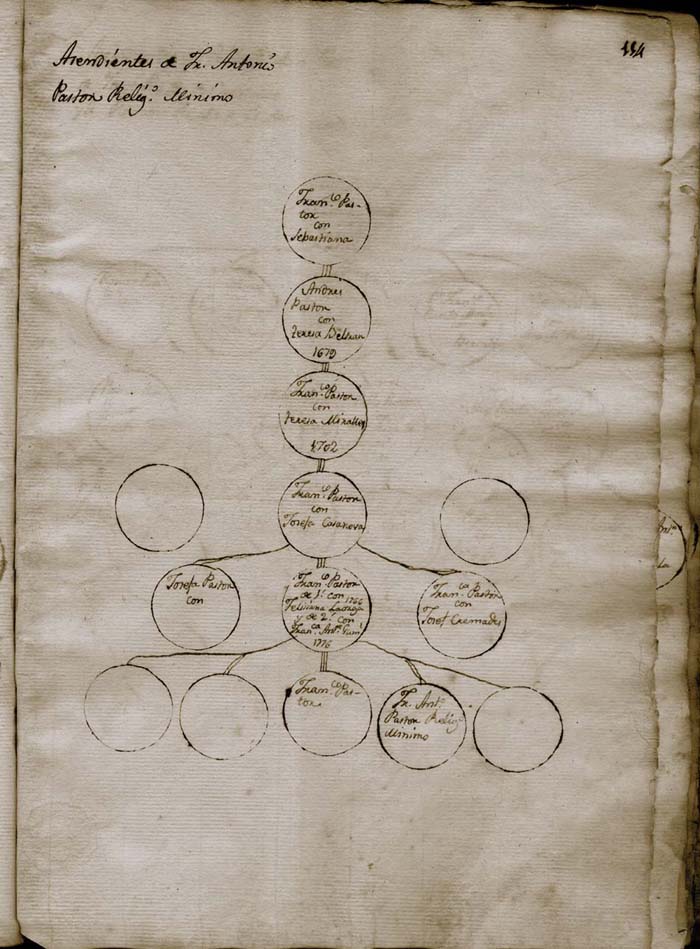 Asendientes de Fr. Antonio
Pastor Relig.º Minimo
114
Fran.co Pas-
tor
con
Sebastiana
Andres
Pastor
con
Teresa Beltran
1679
Fran.co Pastor
con
Teresa Miralles
1702
Fran.co Pastor
con
Josefa Casanova
Josefa Pastor
con
Fran.co Pastor
de 1.ª con 1766
Feliciana
y de 2.ª con
Fran.ca Ant.ª
1776
Fran.ca Pastor
con
Josef Cremades
Fran.co Pas-
tor
Fr. Ant.º
Pastor Relig.º
Minimo